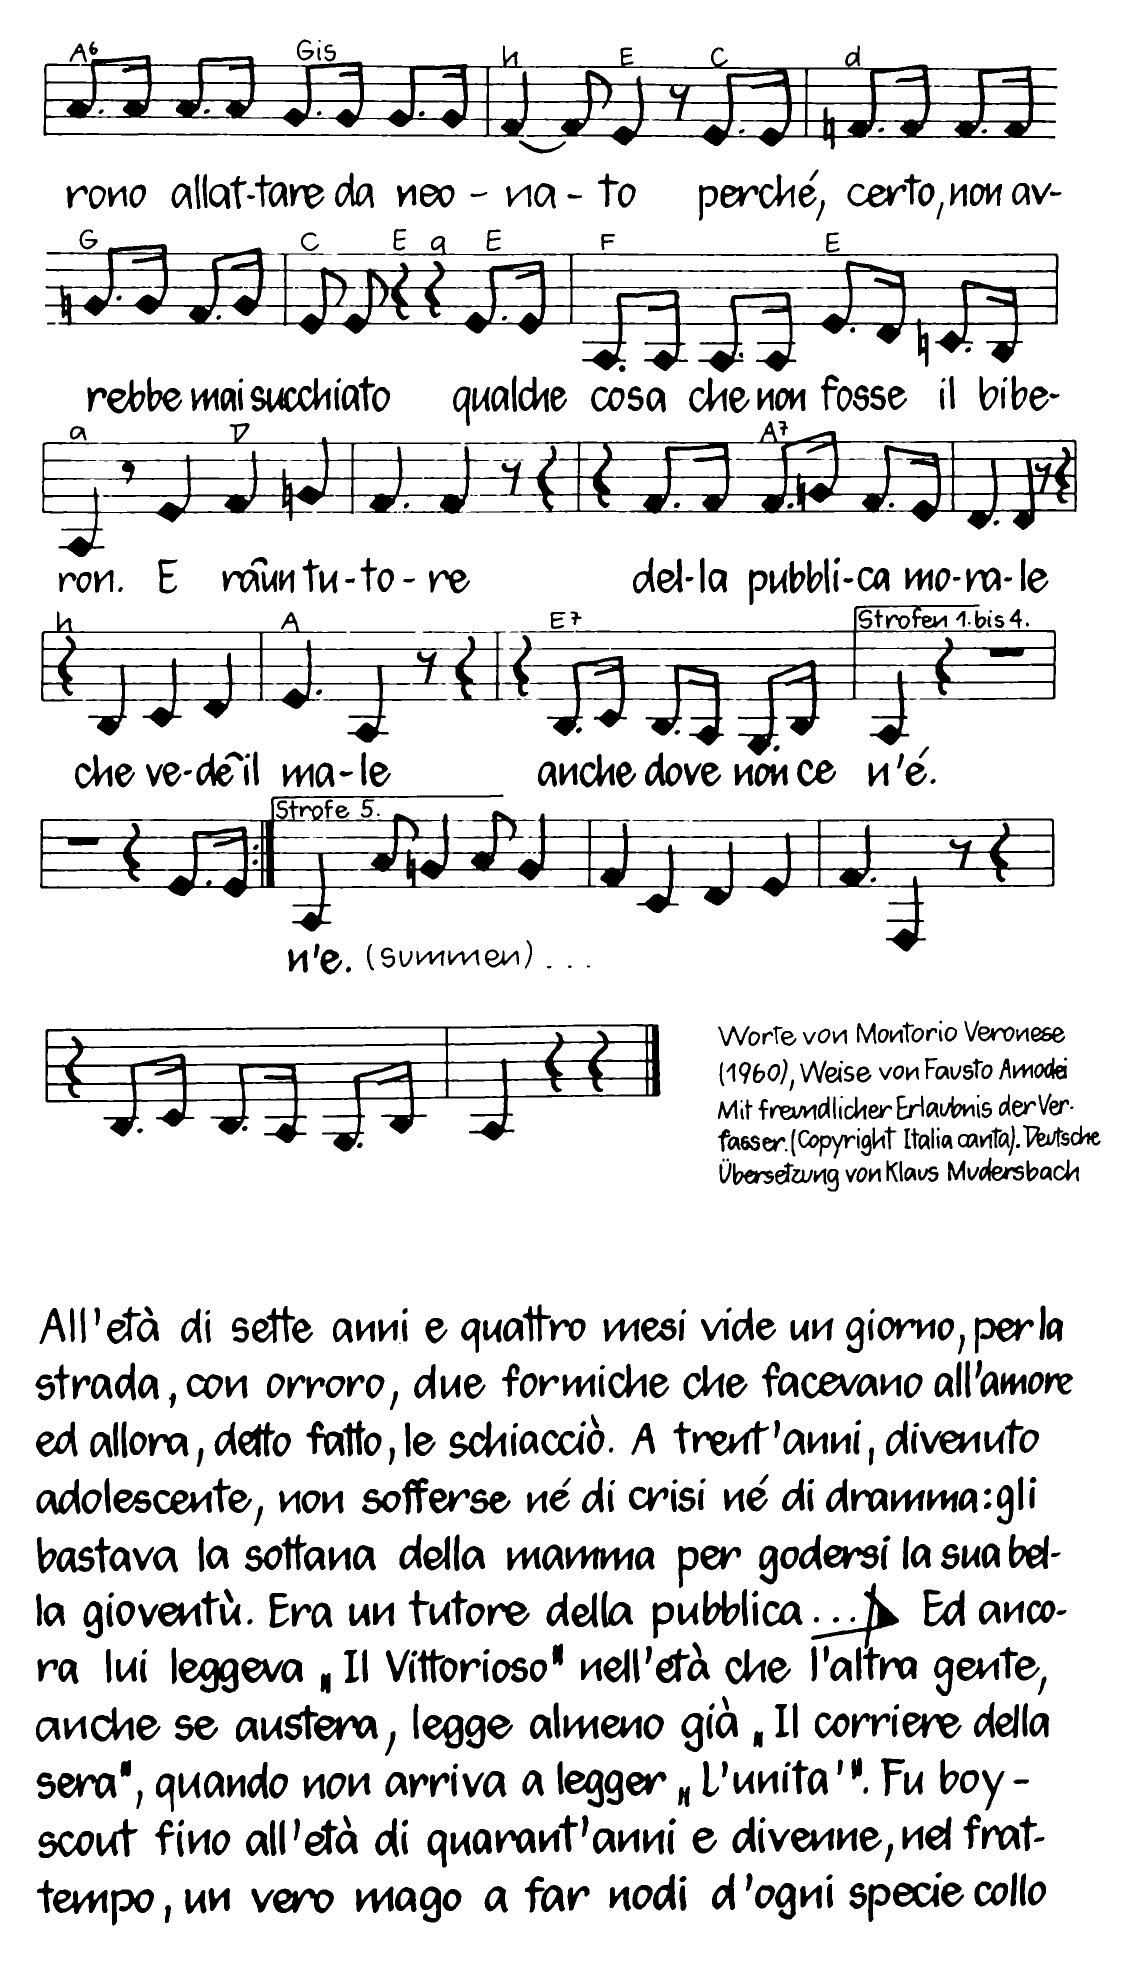 A6 Gis h E C d
rono allat-tare da neo - na - to perché, certo, non av-
G C E a E F E
rebbe mai succhiato qualche cosa che non fosse il bibe-
a D A7
ron. E râun tu-to-re del-la pubbli-ca mo-ra-le
h A E7 Strofen 1. bis 4.
che ve-dêil ma-le anche dove non ce n'é.
Strofe 5.
n'e. (summen) ...
Worte von Montorio Veronese
(1960), Weise von Fausto Amodei
Mit freundlicher Erlaubnis der Ver-
fasser. (Copyright Italia canta). Deutsche
Übersetzung von Klaus Mudersbach
All'età di sette anni e quattro mesi vide un giorno, per la
strada, con orroro, due formiche che facevano all'amore
ed allora, detto fatto, le schiacciò. A trent'anni, divenuto
adolescente, non sofferse né di crisi né di dramma: gli
bastava la sottana della mamma per godersi la sua bel-
la gioventù. Era un tutore della pubblica ... Ed anco-
ra lui leggeva „Il Vittorioso" nell'età che l'altra gente,
anche se austera, legge almeno già „Il corriere della
sera", quando non arriva a legger „L'unita'". Fu boy-
scout fino all'età di quarant'anni e divenne, nel frat-
tempo, un vero mago a far nodi d'ogni specie collo